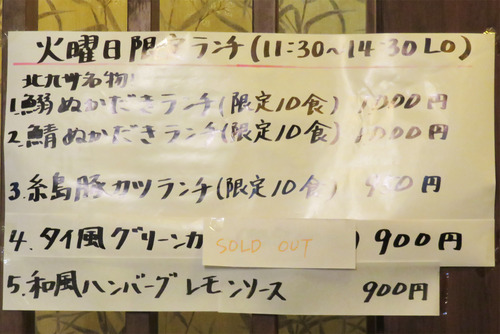 火曜日限定ランチ(11:30〜14:30LO)
北九州名物!
1.鰯ぬかだきランチ(限定10食) 1000円
2.鯖ぬかだきランチ(限定10食) 1000円
3.糸島豚カツランチ(限定10食) 950円
4.タイ風グリーンカ ) 900円
SOLD OUT
5.和風ハンバーグレモンソース 900円